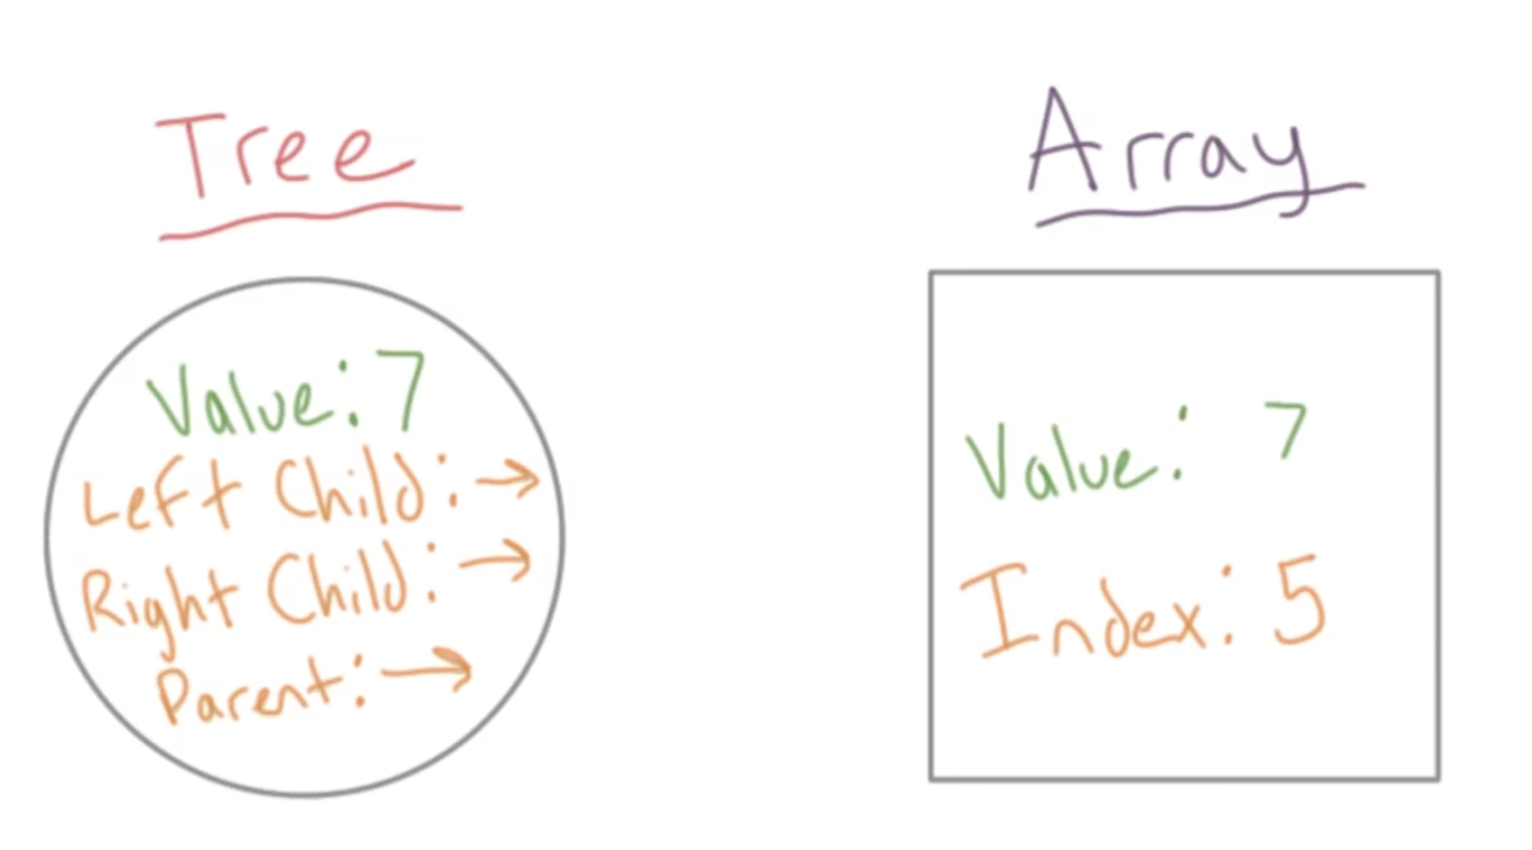 Tree
Value: 7
Left Child: →
Right Child: →
Parent: →
Array
Value: 7
Index: 5